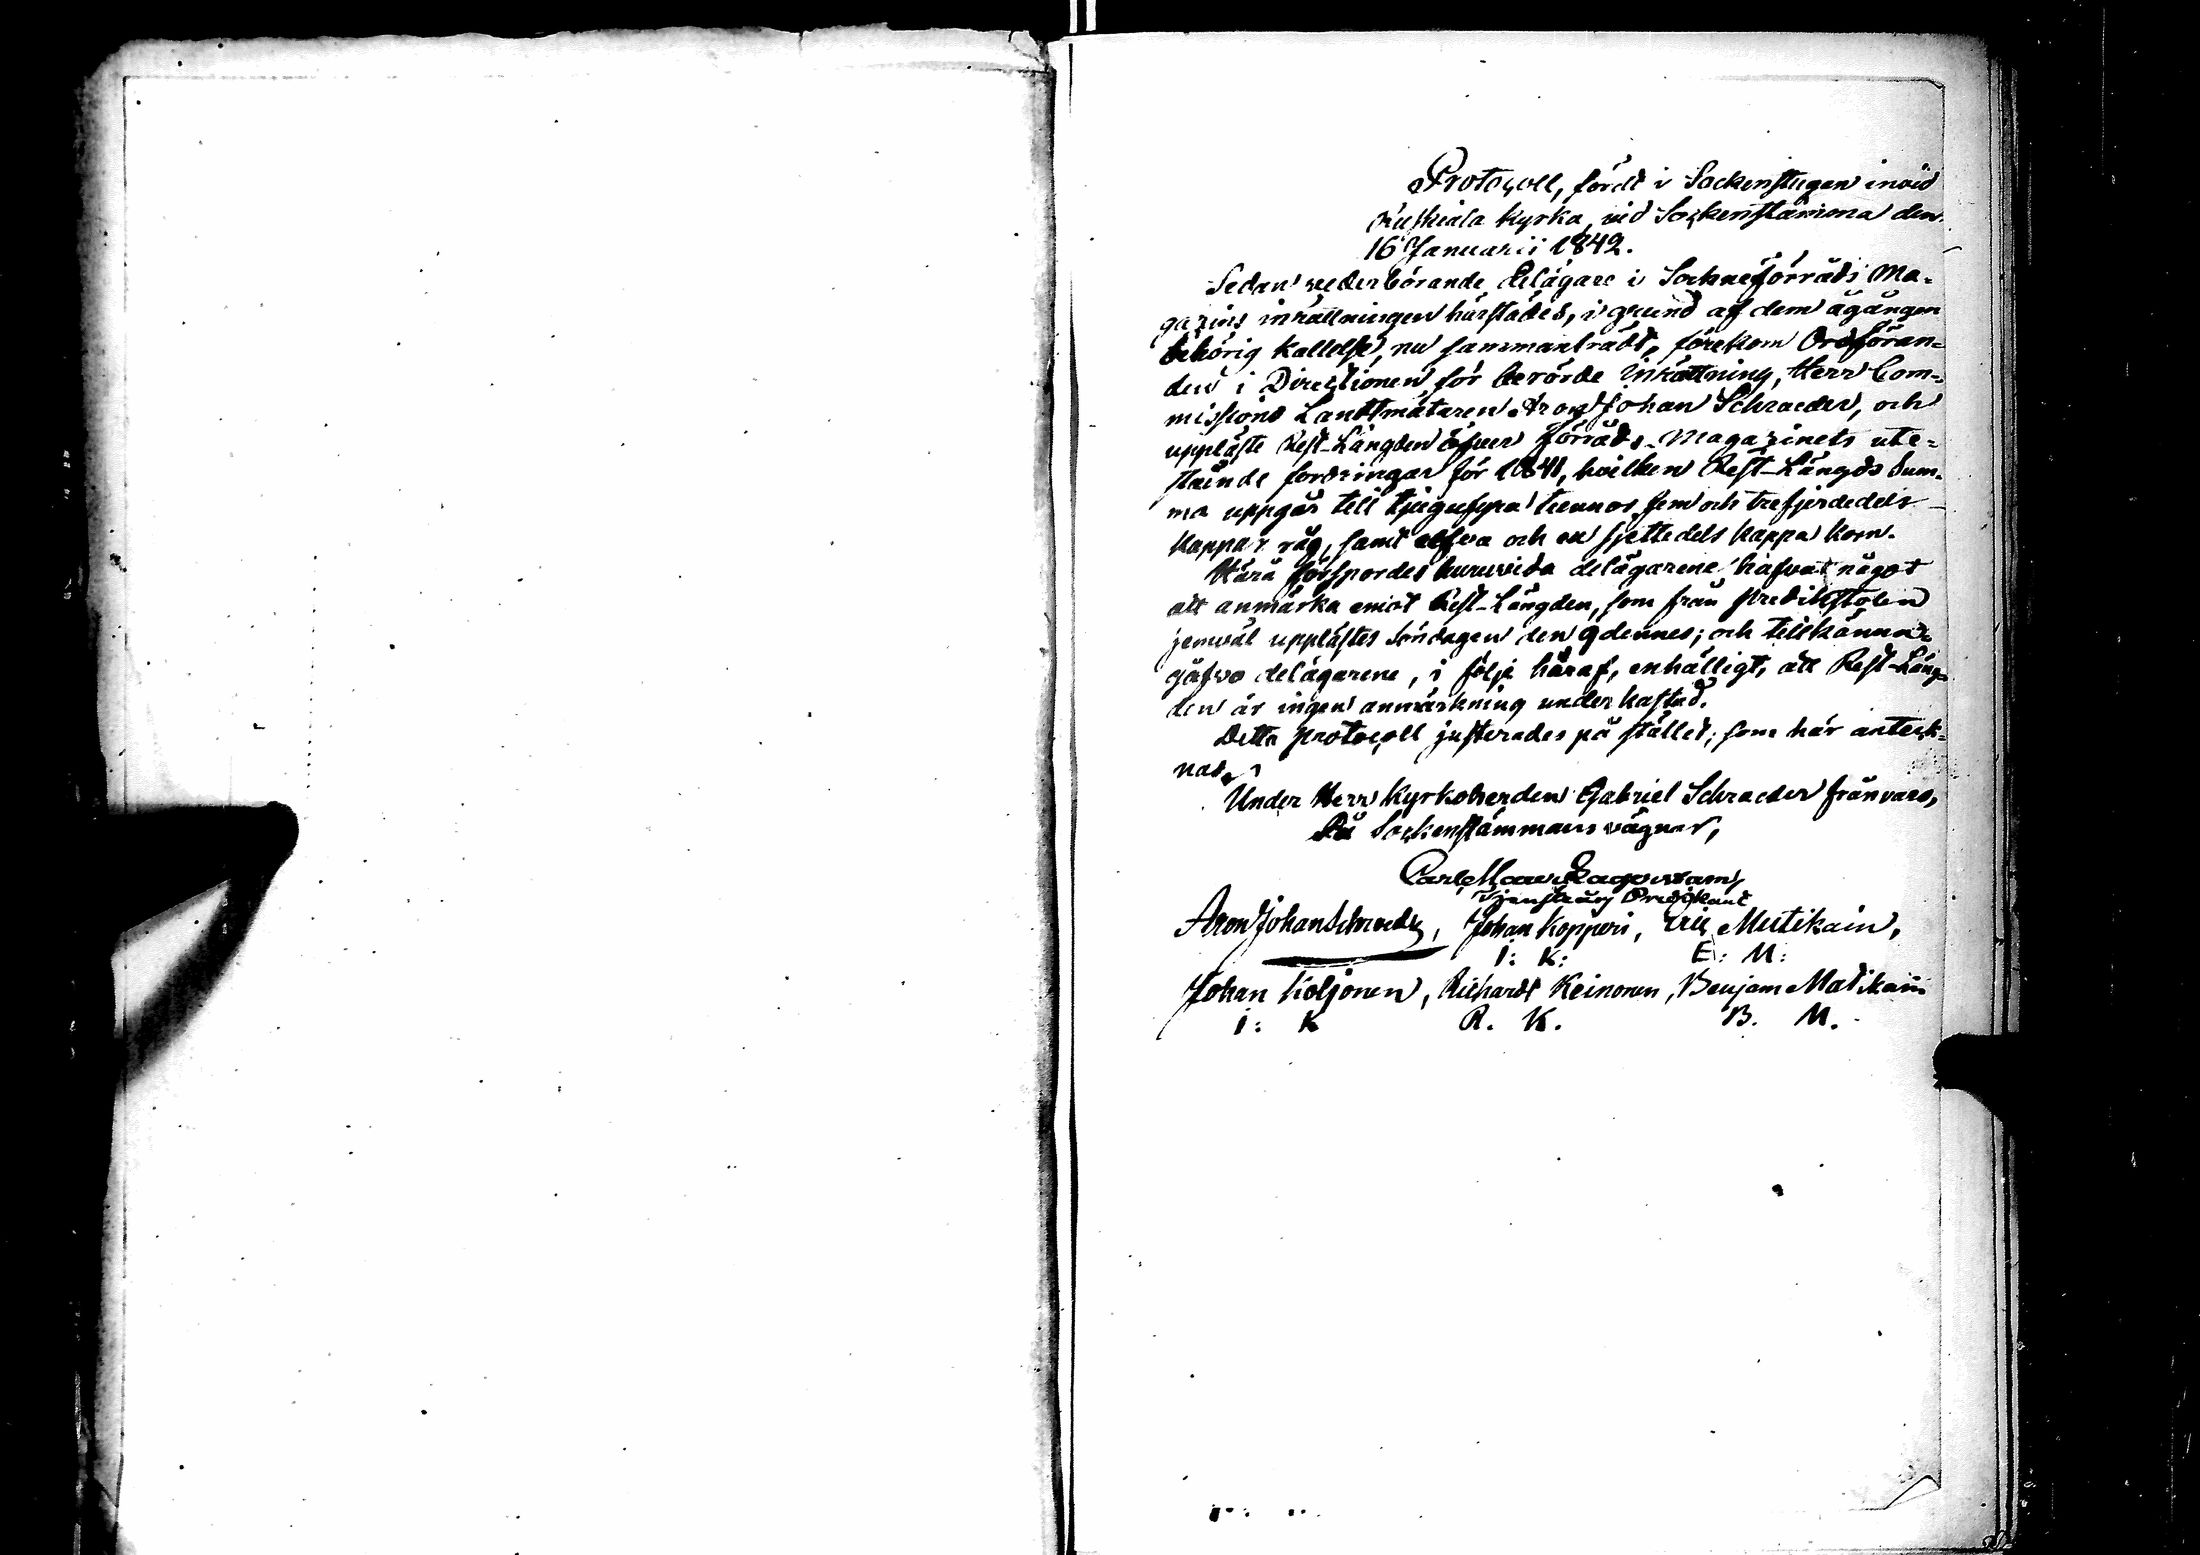 Protocoll, fördt i Sockenstugan invid
Ruskiala Kyrka, vid Sockenstämma den
16 Januarii 1842.
Sedan vederbörande delägare i Sockneförråds Ma-
gazins inrättningen härstädes, i grund af dem ågången
behörig kallelse, nu sammanträdt, förekom Ordföran-
den i Directionen för berörde inrättning, Herr Com-
missions Landtmätaren Aron Johan Schraeder, och
uppläste Rest-Längden öfver Förråds-Magazinets ute-
stående fordringar för 1841, hvilken Rest-Längds Sum-
ma uppgår till tjugufyra tunnor fem och trefjerdedels
kappar råg, samt elfva och en sjettedels kappa korn.
Härå förspordes huruvida delägarene hafva något
att anmärka emot Rest-Längden, som från predikstolen
jemväl upplästes Söndagen den 9 dennes; och tillkänna-
gåfvo delägarene, i följe häraf, enhälligt, att Rest-Läng-
den är ingen anmärkning underkastad.
Detta protocoll justerades på stället; som här anteck-
nas.
Under Herr Kyrkoherden Gabriel Schraeder frånvaro,
På Sockenstämmans vägnar,
Carl
Predikant
Aron Johan Schraeder, Johan Kopperi, Eric Mutikain,
I: K: E: M:
Johan Koljonen, Richardt Keinonen, Benjam Matikain
I: K R. K. B. M.